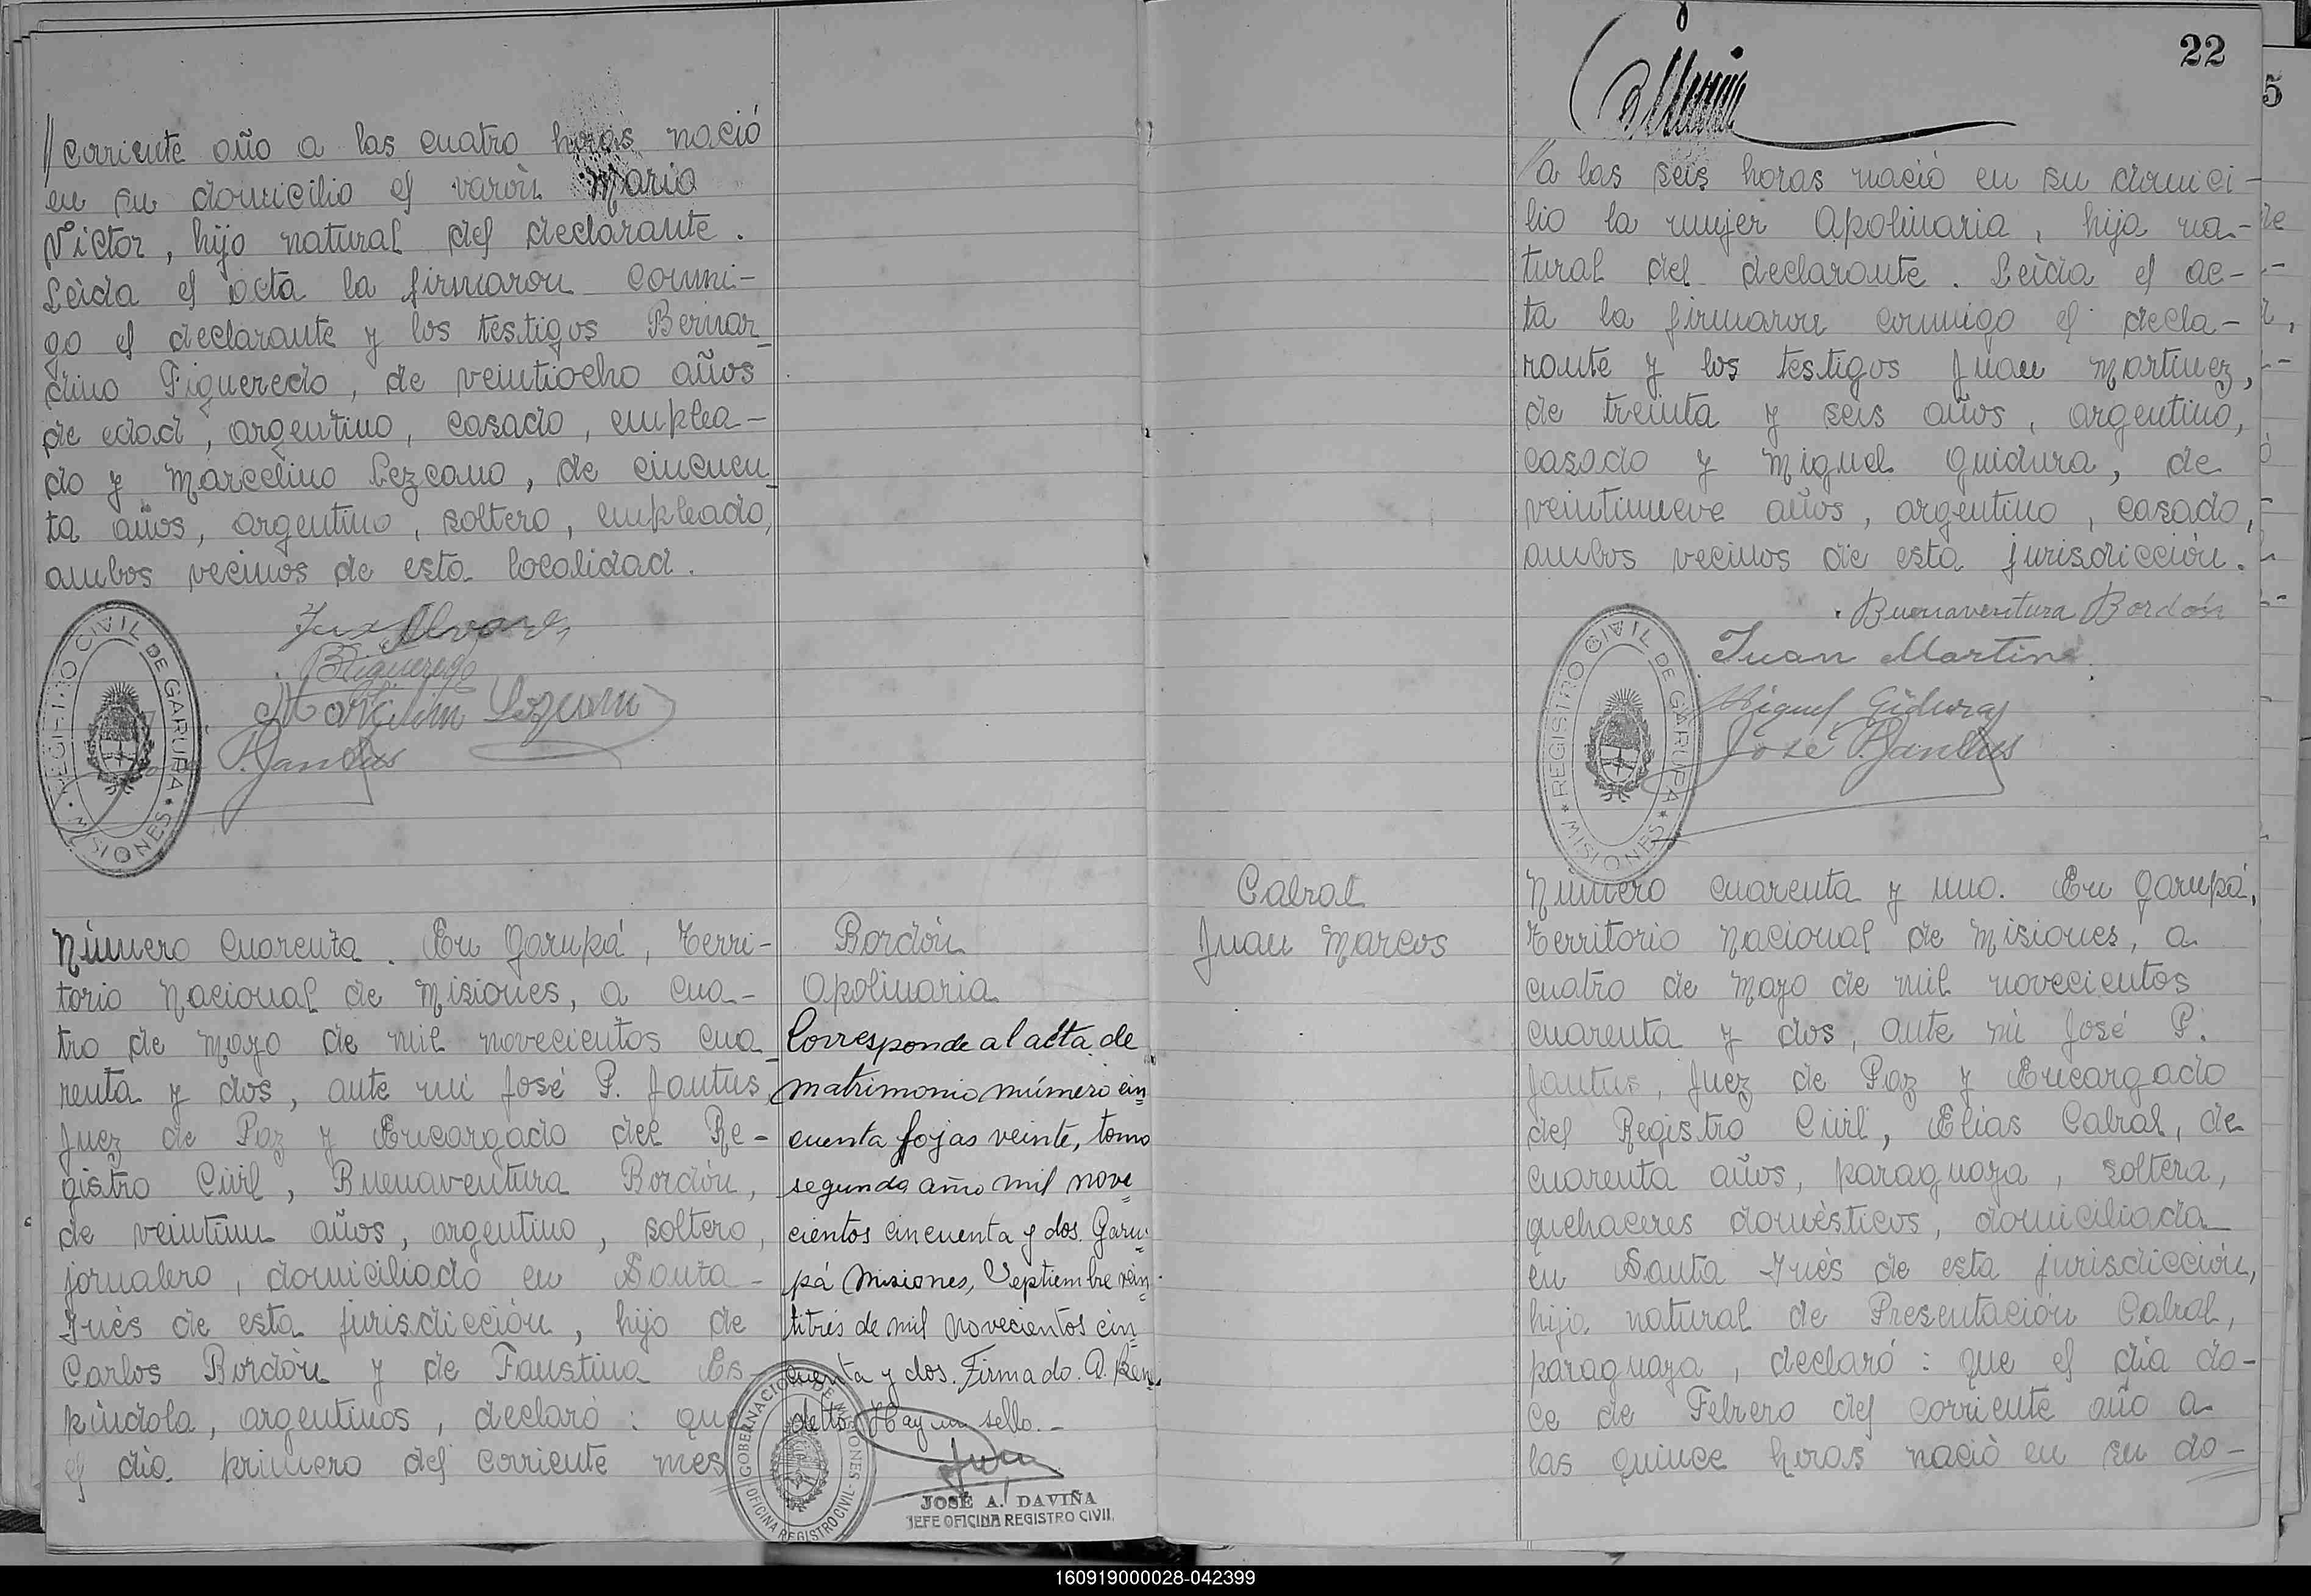 // corriente año a las cuatro horas nació
en su domicilio el varón Mario
Victor, hijo natural del declarante.
Leida el acta la firmaron conmi-
go el declarante y los testigos Bernar-
dino Figueredo, de veintiocho años
de edad, argentino, casado, emplea-
do y Marcelino Lezcano, de cincuen-
ta años, argentino, soltero, empleado,
ambos vecinos de esta localidad.
BFigueredo
REGISTRO CIVIL DE GARUPA
* MISIONES *
Número cuarenta. En Garupá, Terri-
torio Nacional de Misiones, a cua-
tro de mayo de mil novecientos cua-
renta y dos, ante mi José P. Jantus,
Juez de Paz y Encargado del Re-
gistro Civil, Buenaventura Bordón,
de veintiun años, argentino, soltero,
jornalero, domiciliado en Santa-
Inés de esta jurisdicción, hijo de
Carlos Bordón y de Faustina Es-
píndola, argentinos, declaró: que
el día primero del corriente mes
Bordón
Apolinaria
Corresponde al acta de
matrimonio número cin
cuenta fojas veinte, tomo
segundo año mil nove
cientos cincuenta y dos. Garu-
pá Misiones, Septiembre vein-
titrés de mil novecientos cin
cuenta y dos. Firmado. A. Ken
de to. Hay un sello.-
GOBERNACION DE MISIONES
OFICINA REGISTRO CIVIL
JOSÉ A. DAVIÑA
JEFE OFICINA REGISTRO CIVIL
22
5
// a las seis horas nació en su domici-
lio la mujer Apolinaria, hija na-
tural del declarante. Leida el ac-
ta la firmaron conmigo el decla-
rante y los testigos Juan Martinez,
de treinta y seis años, argentino,
casado y Miguel Guidura, de
veintinueve años, argentino, casado,
ambos vecinos de esta jurisdicción.
Buenaventura Bordón
Juan Martine
Miguel Gidura
José P. Jantus
REGISTRO CIVIL DE GARUPA
* MISIONES *
Cabral
Juan Marcos
Número cuarenta y uno. En Garupá,
Territorio Nacional de Misiones, a
cuatro de mayo de mil novecientos
cuarenta y dos, ante mi José P.
Jantus, Juez de Paz y Encargado
del Registro Civil, Elías Cabral, de
cuarenta años, paraguaya, soltera,
quehaceres domésticos, domiciliada
en Santa Inés de esta jurisdicción,
hija natural de Presentación Cabral,
paraguaya, declaró: que el día do-
ce de Febrero del corriente año a
las quince horas nació en su do-
160919000028-042399